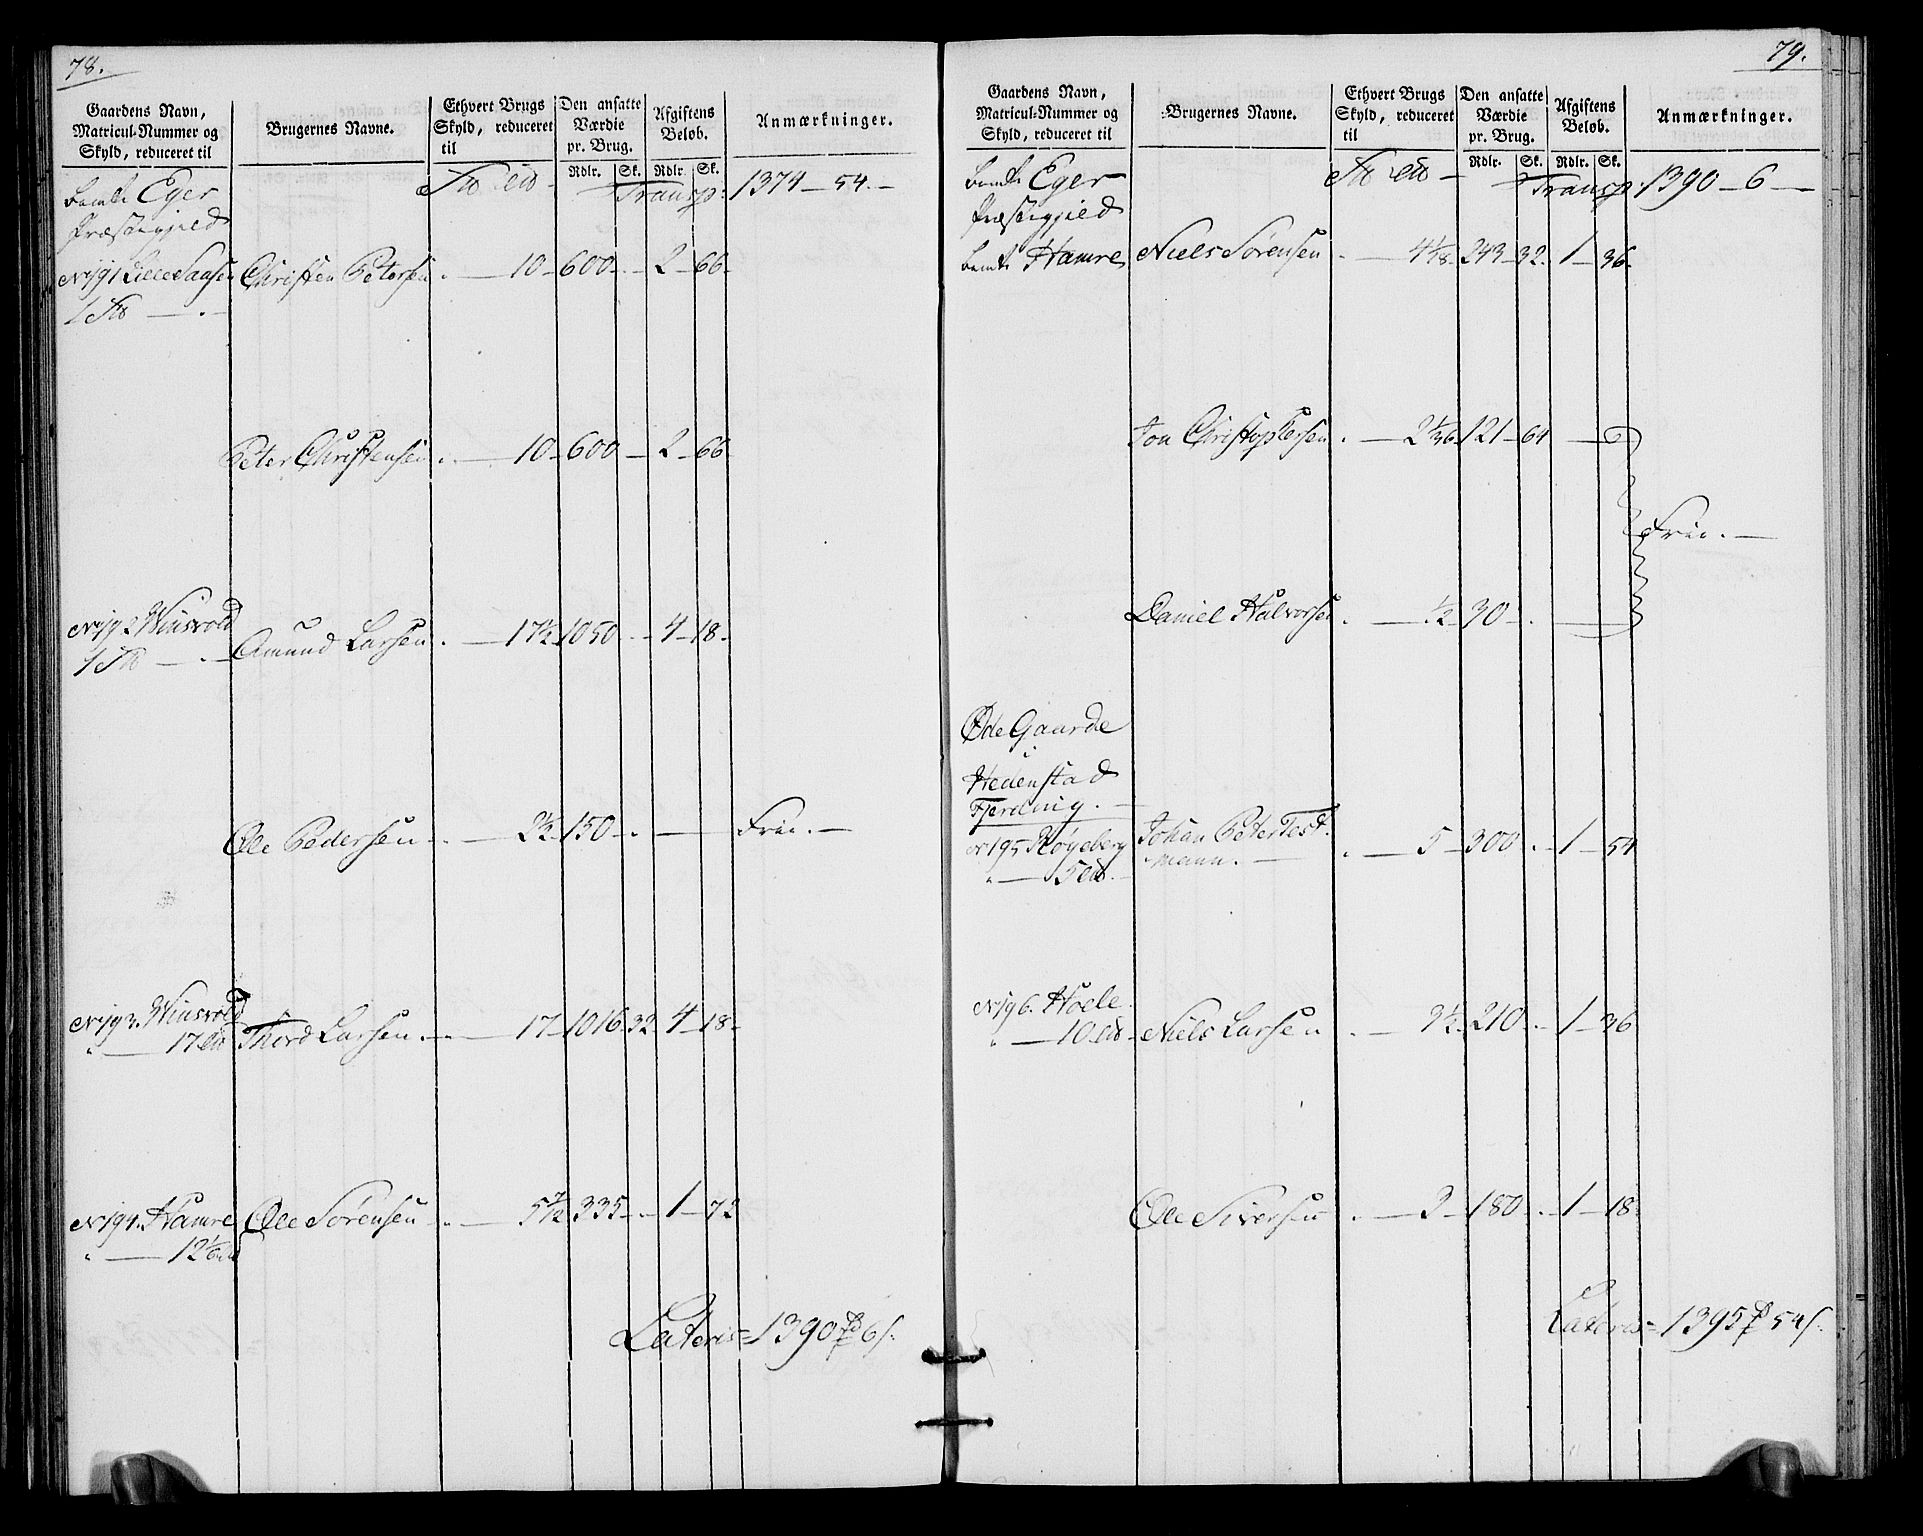 78.
Gaardens Navn, Matricul-Nummer og Skyld, reduceret til | Brugernes Navne. | Ethvert Brugs Skyld, reduceret til | Den ansatte Værdie pr. Brug. | Afgiftens Beløb. | Anmærkninger.
Rdlr. | Sk. | Rdlr. | Sk.
Transp: 1374 — 54. —
bemte Eger
Præstegjeld
N 191 Lille Saasen Christen Petersen . — 10 — 600 — . — 2 — 66 —
1
Peter Christensen . — 10 — 600 — 2 — 66
N 192 Winsvold
1
Amund Larsen . — 17½ 1050 . — 4 — 18 .
Ole Pedersen . — 2½ 150 — . — Frie. —
N 193. Winsvold
" — 17 Thord Larsen . — 17 — 1016. 32 4 — 18 —
N 194. Hamre Ole Sørensen . — 5 7/12 335 — . — 1 — 72
" — 12 1/6
Lateris = 1390 6 s.
79.
Gaardens Navn, Matricul-Nummer og Skyld, reduceret til | Brugernes Navne. | Ethvert Brugs Skyld, reduceret til | Den ansatte Værdie pr. Brug. | Afgiftens Beløb. | Anmærkninger.
Rdlr. | Sk. | Rdlr. | Sk.
Transp. 1390 — 6 —
bemte Eger
Præstegjeld
bemte Hamre Niels Sørensen . — 4 1/18 243 — 32. 1 — 36.
Jon Christophersen . — 2 1/36 121 — 64 —
Frie. —
Daniel Halvorsen . — ½ 30 — . —
Øde Gaarde
i
Hedenstad
Fjerding. —
N 195 Røgeberg Johan Peter Test-
mann. — . — 5 — 300 . — 1 — 54
" — 5
N 196. Hoele
" — 10 — Niels Larsen . — 3½ 210 . — 1 — 36
Ole Siversen . — 3 — 180 . — 1 — 18
Lateris = 1395 54 s.